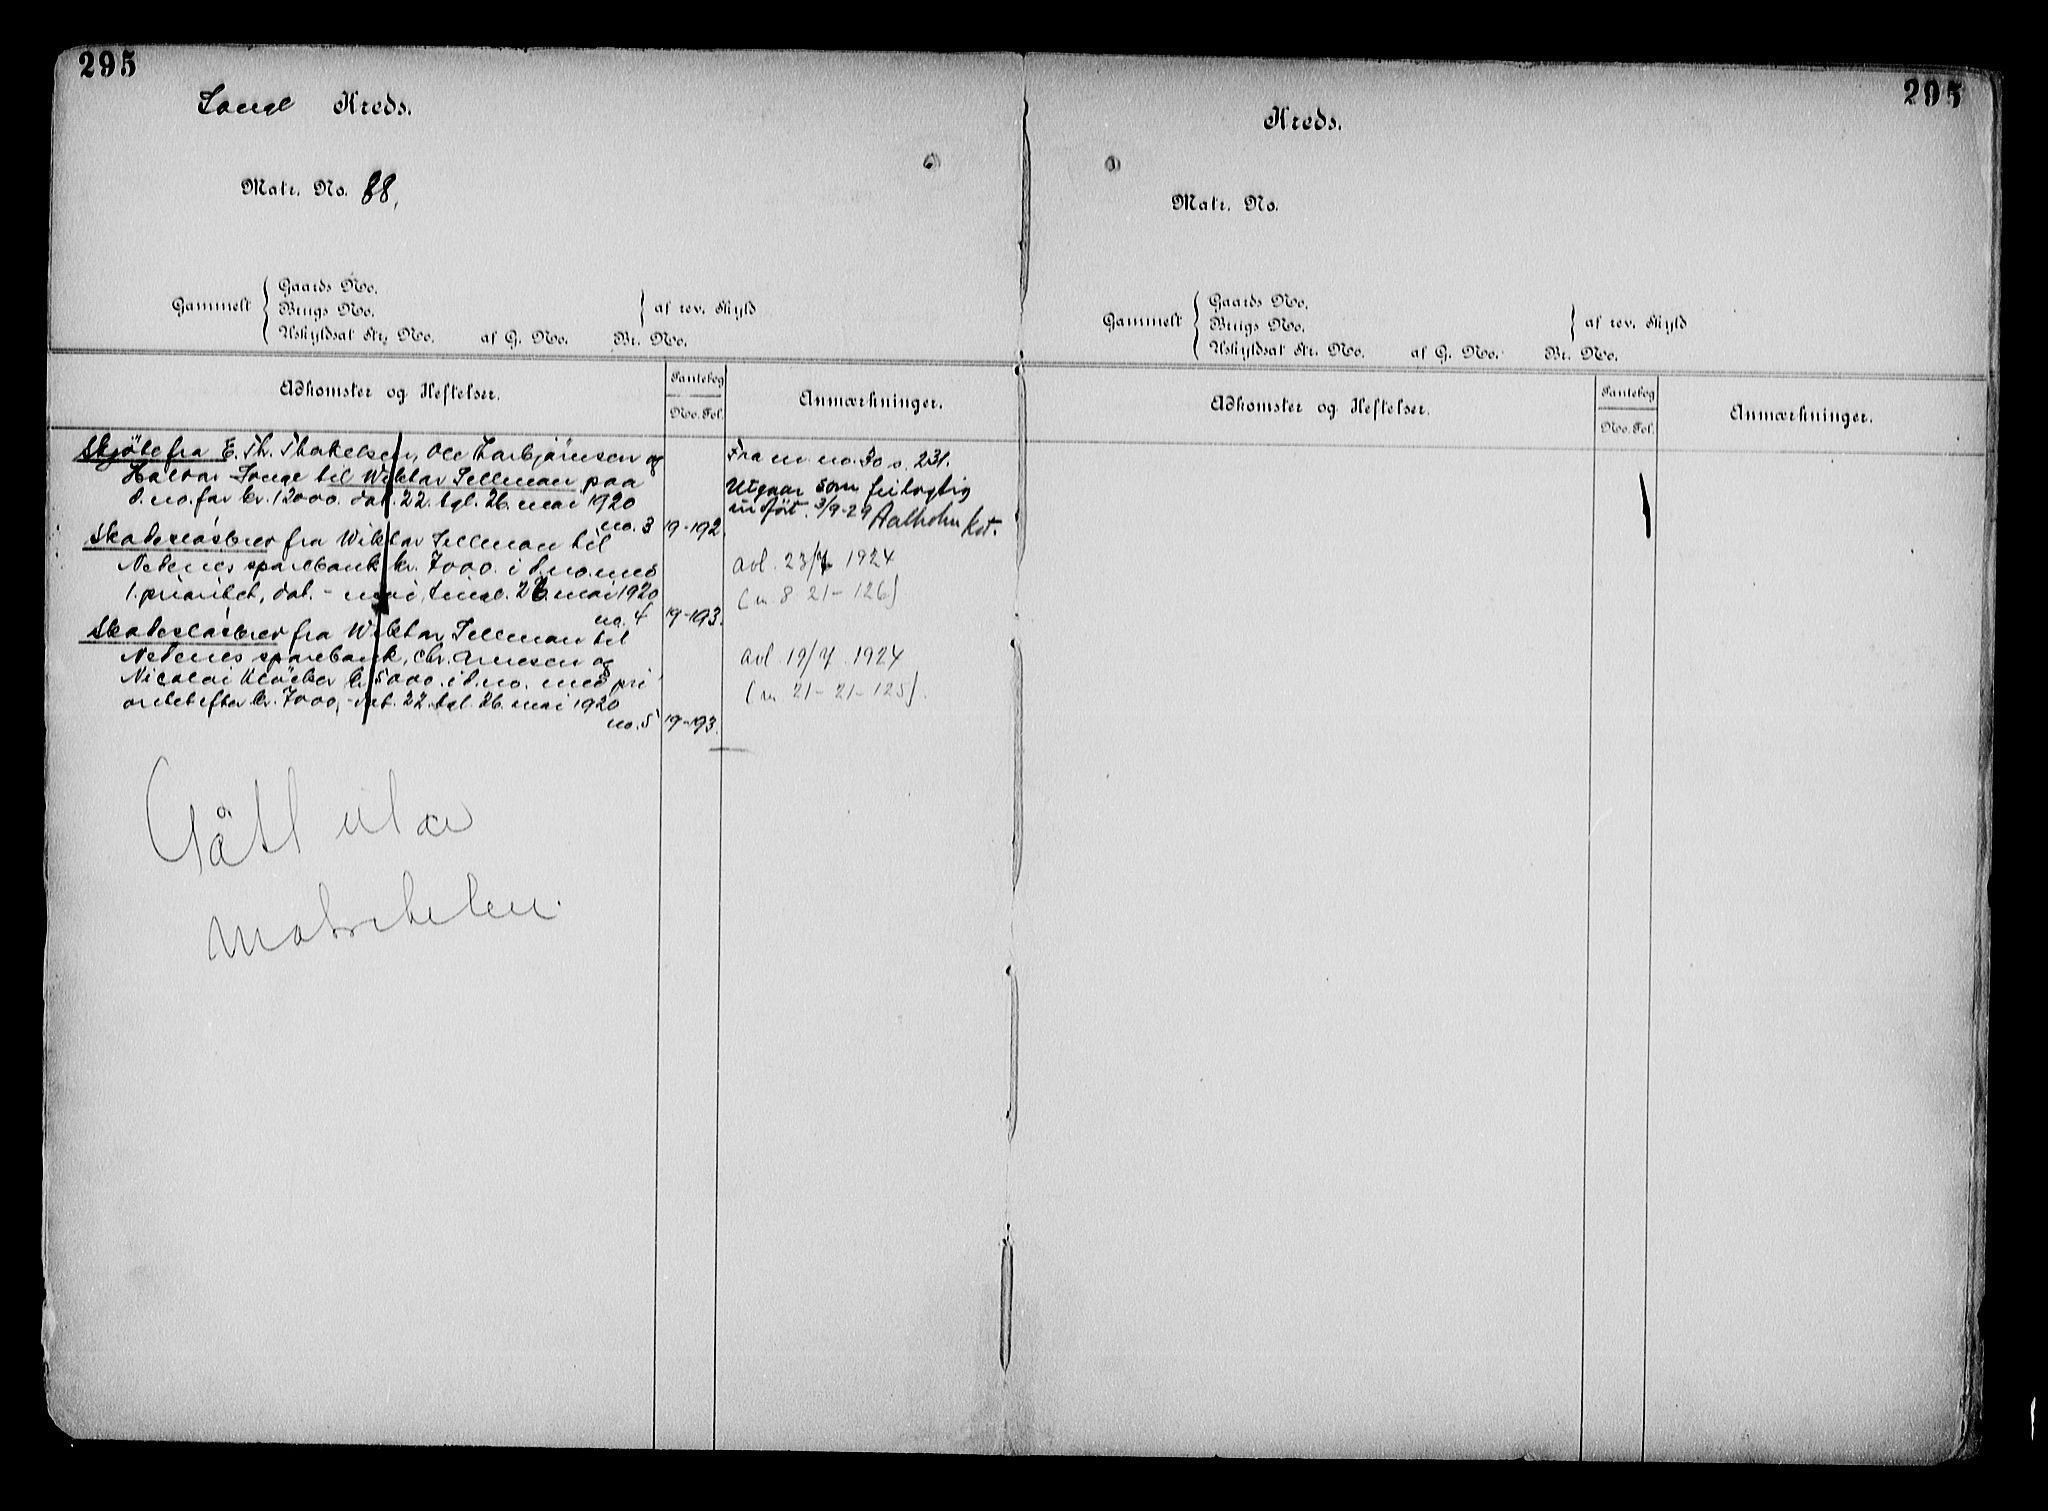 295
Songe Kreds.
Matr. No. 88,
Gammelt
Gaards No.
Brugs No.
Uskyldsat Str. No. af G. No. Br. No.
af rev. Skyld
Adkomster og Heftelser.
Pantebog
No. Fol.
Anmærkninger.
Skjöte fra E. Th. Thorkelsen, Ole Torbjörnsen og
Halvor Songe til Wiktor Tellman paa
d. no. for kr. 12000. dat. 22. tgl. 26. mai 1920
no. 3 19-192.
Skadeslösbrev fra Wiktor Tellman til
Nedenes sparebank kr. 7000. i d. no. med
1. prioritet, dat. - mai, tingl. 26. mai 1920
no. 4 19-193.
Skadeslösbrev fra Wiktor Tellman til
Nedenes sparebank, Chr. Arnesen og
Nicolai Klöcker kr. 5000. i d. no. med pri
oritet efter kr. 7000, - dat. 22. tgl. 26. mai 1920
no. 5 19-193.
Fra m. no. 30 s. 231.
Utgaar som feilagtig
indfört. 3/9-29 Aalholm kst.
avl. 23/7 1924
(n 8-21-126)
avl. 19/7. 1924
(n 21-21-125).
Gått ut av
matrikelen.
295
Kreds.
Matr. No.
Gammelt
Gaards No.
Brugs No.
Uskyldsat Str. No. af G. No. Br. No.
af rev. Skyld
Adkomster og Heftelser.
Pantebog
No. Fol.
Anmærkninger.